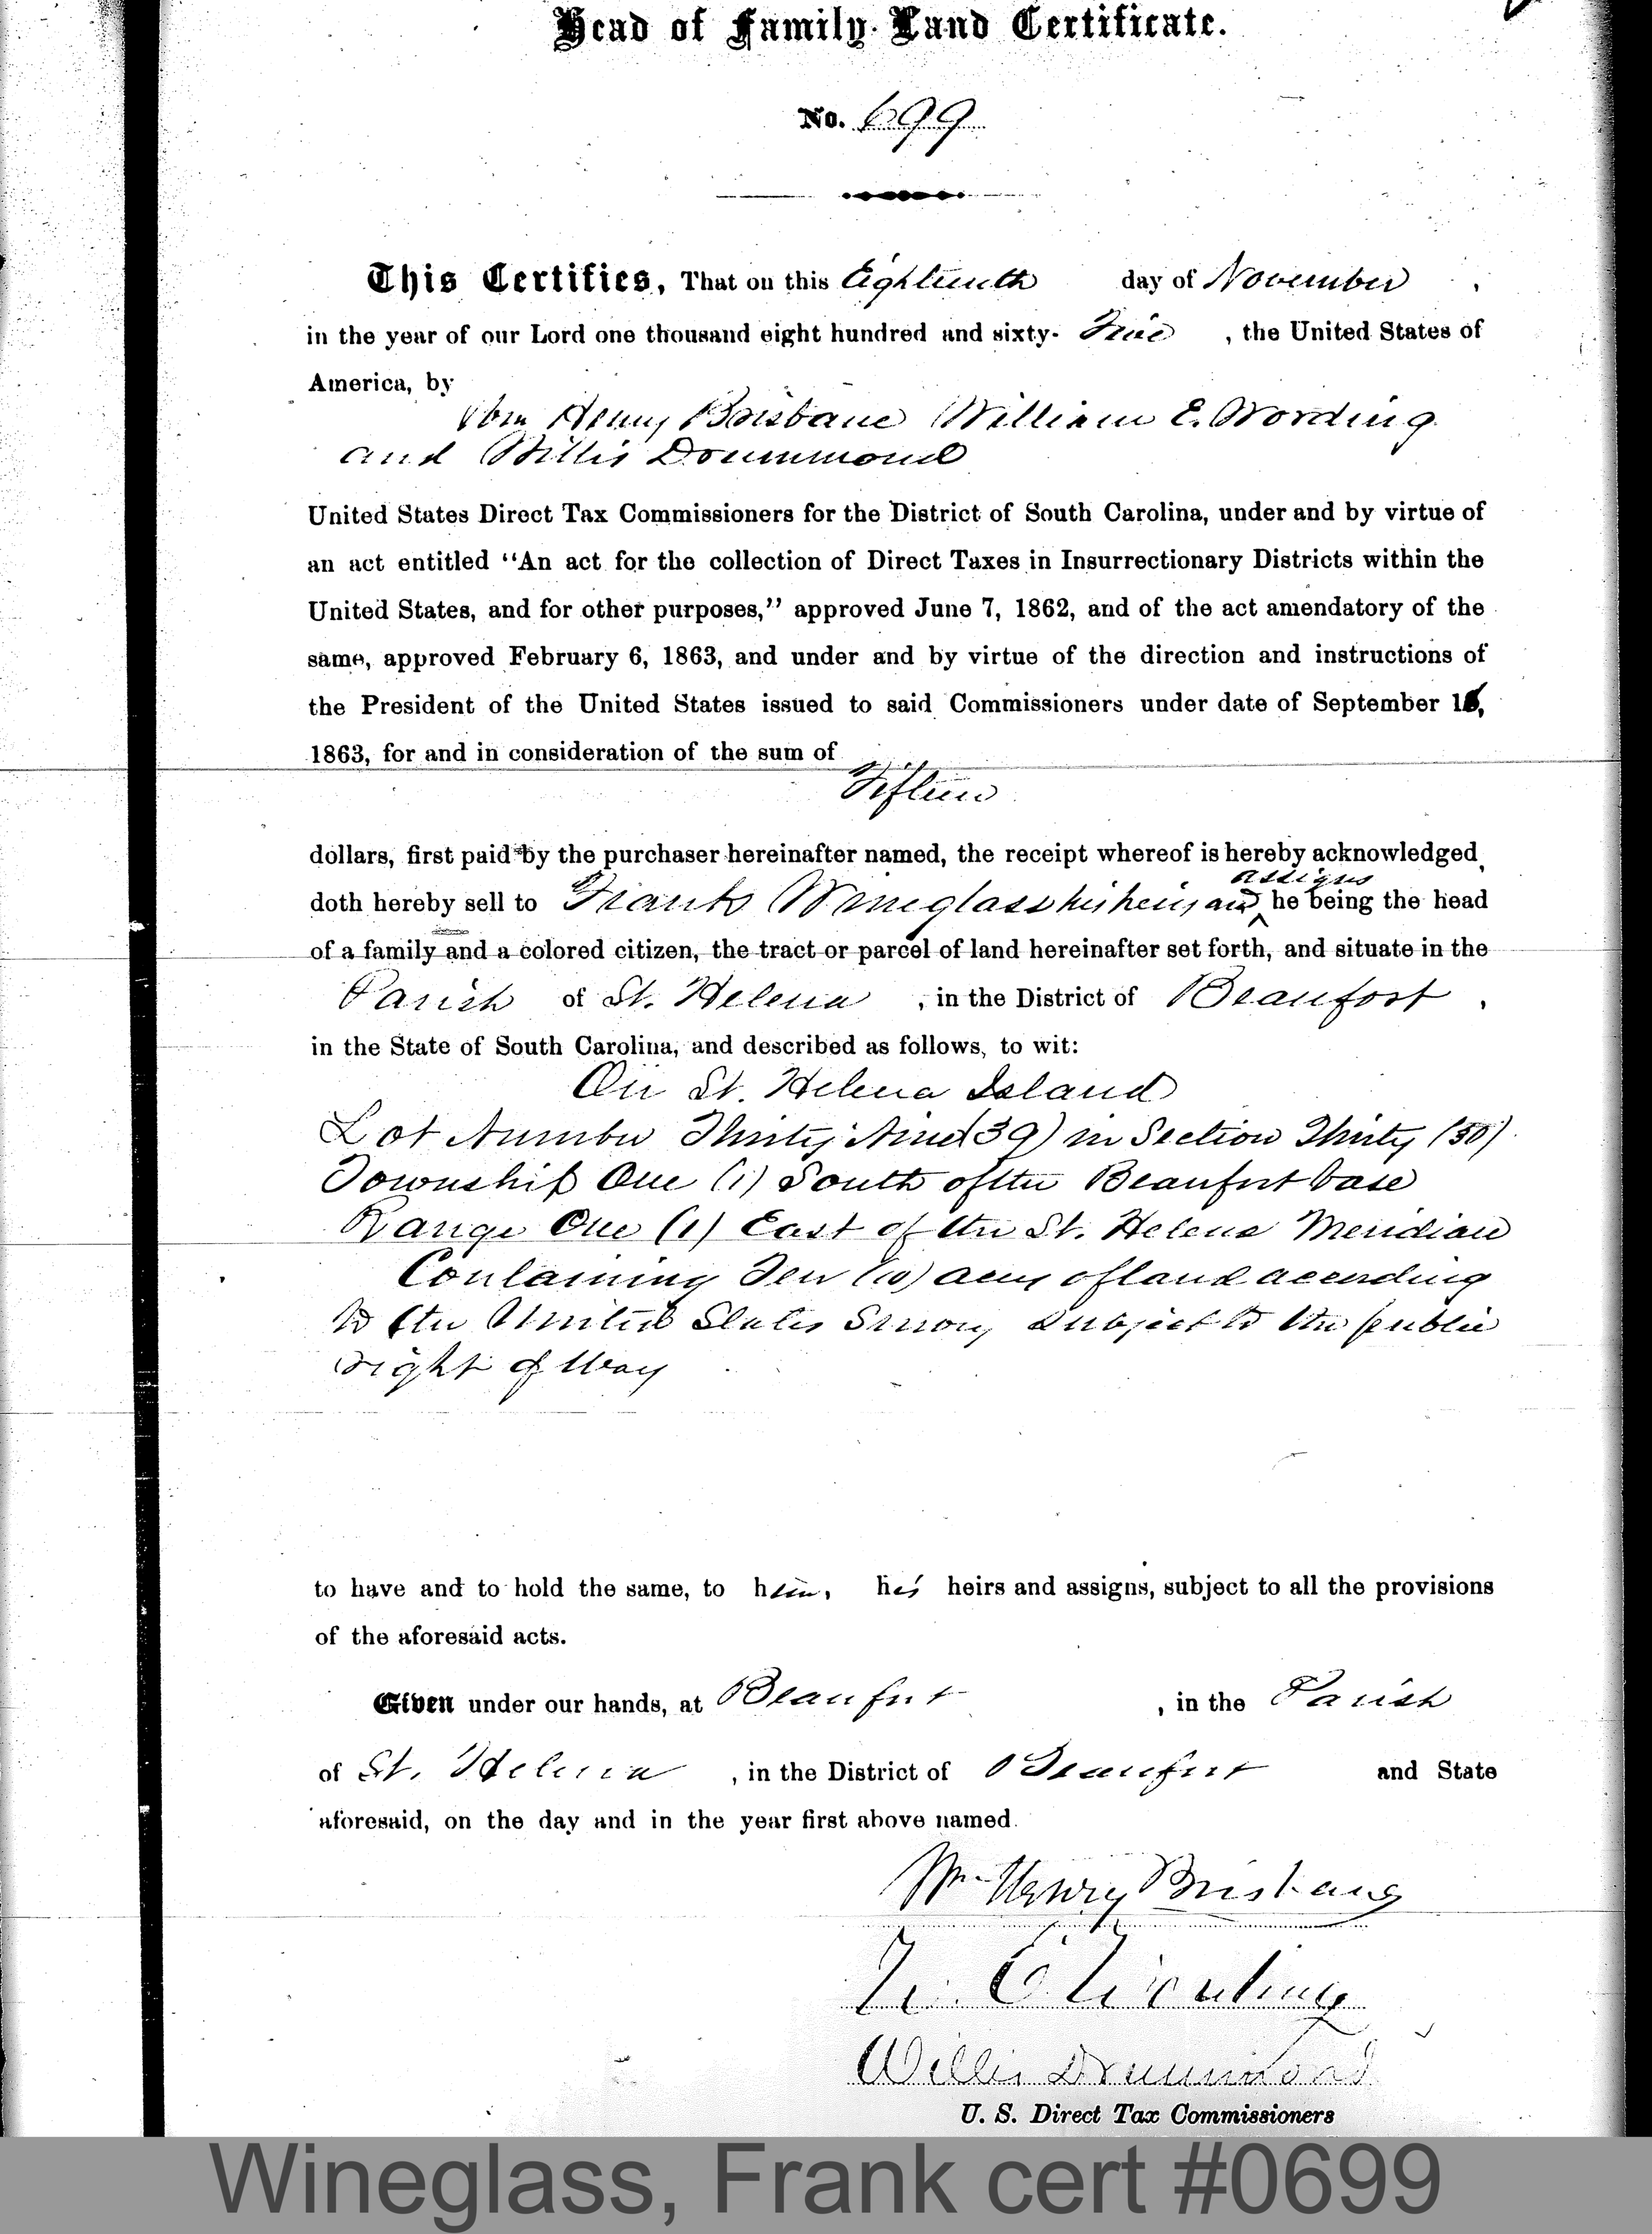 Head of Family Land Certificate.
No. 699
This Certifies, That on this Eighteenth day of November,
in the year of our Lord one thousand eight hundred and sixty-five, the United States of
America, by
Wm Henry Brisbane William E. Wording
and Willis Drummond
United States Direct Tax Commissioners for the District of South Carolina, under and by virtue of
an act entitled "An act for the collection of Direct Taxes in Insurrectionary Districts within the
United States, and for other purposes," approved June 7, 1862, and of the act amendatory of the
same, approved February 6, 1863, and under and by virtue of the direction and instructions of
the President of the United States issued to said Commissioners under date of September 16,
1863, for and in consideration of the sum of
Fifteen
dollars, first paid by the purchaser hereinafter named, the receipt whereof is hereby acknowledged
assigns
doth hereby sell to Frank Wineglass his heirs and he being the head
of a family and a colored citizen, the tract or parcel of land hereinafter set forth, and situate in the
Parish of St. Helena, in the District of Beaufort,
in the State of South Carolina, and described as follows, to wit:
On St. Helena Island
Lot Number Thirty Nine (39) in Section Thirty (30)
Township One (1) South of the Beaufort base
Range One (1) East of the St. Helena Meridian
Containing Ten (10) acres of land according
to the United States Survey subject to the public
right of Way
to have and to hold the same, to him, his heirs and assigns, subject to all the provisions
of the aforesaid acts.
Given under our hands, at Beaufort, in the Parish
of St. Helena, in the District of Beaufort and State
aforesaid, on the day and in the year first above named.
Wm Henry Brisbane
W. E. Wording
Willis Drummond
U. S. Direct Tax Commissioners
Wineglass, Frank cert #0699